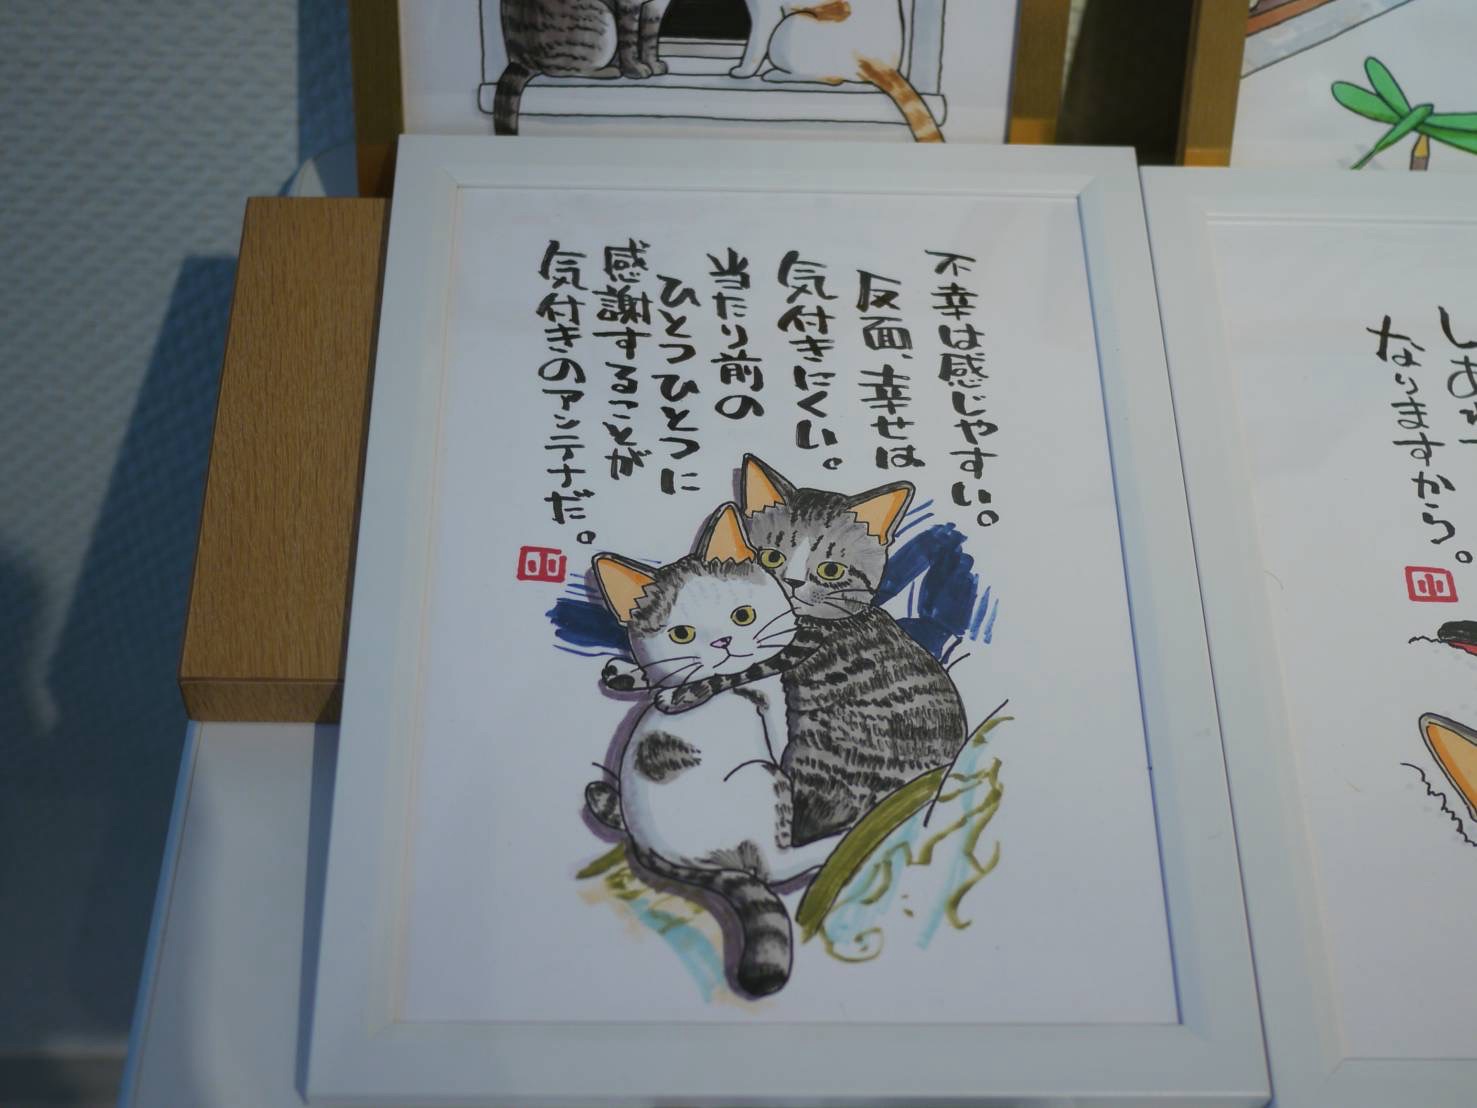 不幸は感じやすい。
反面、幸せは
気付きにくい。
当たり前の
ひとつひとつに
感謝することが
気付きのアンテナだ。
なりますから。